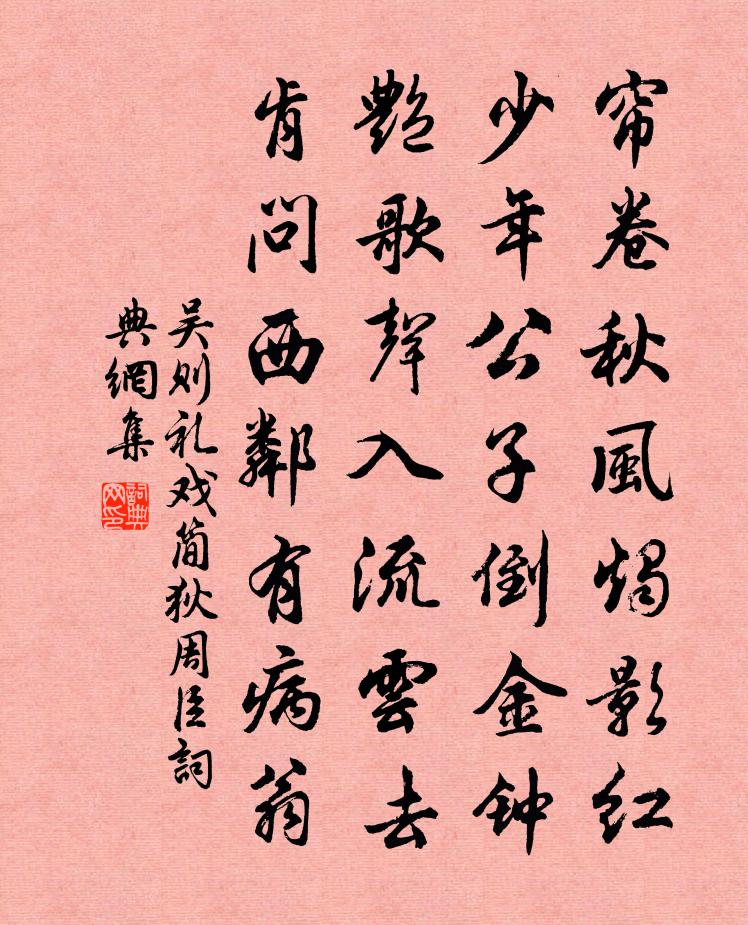 帘卷秋風燭影红
少年公子倒金钟
艷歌聲入流雲去
肯问西鄰有病翁
吴则礼戏简狄周臣詞
典網集
詞典网印